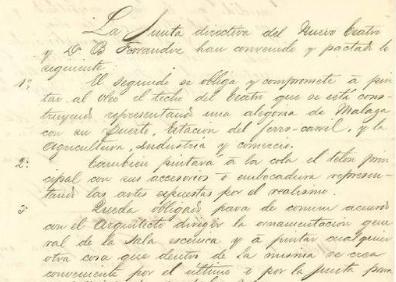 La Junta directiva del Nuevo Teatro
y Dn B Ferrandiz han convenido y pactado lo
siguiente.
1º El segundo se obliga y compromete á pin-
tar al oleo el techo del Teatro que se está cons-
truyendo representando una alegoria de Malaga
con su Puerto, Estacion del ferro-carril, y la
Agricultura, Industria y comercio.
2º Tambien pintará á la cola el telon prin-
cipal con sus accesorios ó embocadura represen-
tando las artes repuestas por el realismo.
3º Queda obligado para de comun acuerdo
con el Arquitecto dirigir la ornamentacion gene-
ral de la sala escenica y á pintar cualquier
otra cosa que dentro de la misma se crea
conveniente por el ultimo ó por la Junta para